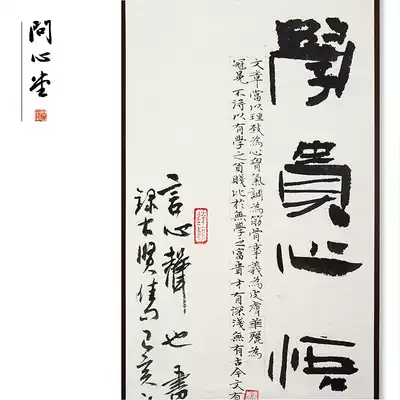 問心堂
學貴心悟
文章當以理致為心腎氣調為筋骨事義為皮膚華麗為
冠冕不得以有學之貧賤比於無學之富貴才有深淺無有古今文有
言心聲也書
錄古賢佳句己亥